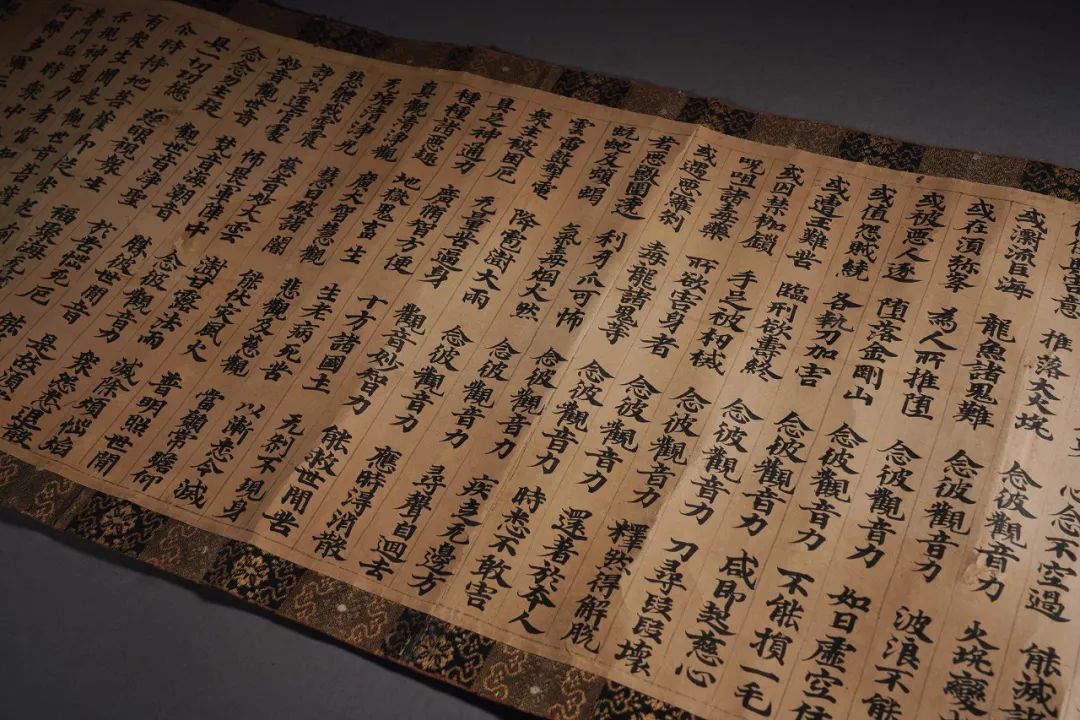 心念不空過 能滅諸
害意 推落大火坑 念彼觀音力 火坑變
或漂流巨海 龍魚諸鬼難 念彼觀音力 波浪不能
或在須弥峯 為人所推墮 念彼觀音力 如日虛空住
或被惡人逐 墮落金剛山 念彼觀音力 不能損一毛
或值怨賊繞 各執刀加害 念彼觀音力 咸即起慈心
或遭王難苦 臨刑欲壽終 念彼觀音力 刀尋段段壞
或囚禁枷鎖 手足被杻械 念彼觀音力 釋然得解脫
呪咀諸毒藥 所欲害身者 念彼觀音力 還著於本人
或遇惡羅剎 毒龍諸鬼等 念彼觀音力 時悉不敢害
若惡獸圍遶 利牙爪可怖 念彼觀音力 疾走无邊方
蚖蛇及蝮蝎 氣毒烟火然 念彼觀音力 尋聲自迴去
雲雷鼓掣電 降雹澍大雨 念彼觀音力 應時得消散
衆生被困厄 无量苦逼身 觀音妙智力 能救世間苦
具足神通力 廣脩智方便 十方諸國土 无剎不現身
種種諸惡趣 地獄鬼畜生 生老病死苦 以漸悉令滅
真觀清淨觀 廣大智慧觀 悲觀及慈觀 常願常瞻仰
无垢清淨光 慧日破諸闇 能伏災風火 普明照世間
悲體戒雷震 慈音妙大雲 澍甘露法雨 滅除煩惱焰
諍訟逕官處 怖畏軍陣中 念彼觀音力 衆怨悉退散
妙音觀世音 梵音海潮音 勝彼世間音 是故須
念念勿生疑 觀世音淨聖 於苦惱死厄 能
具一切功德 慈眼視衆生 福聚海无
尒時持地菩薩即從坐起
有衆生聞是觀世音菩薩
示現神通力者當知是
普門品時衆中
阿耨多羅三